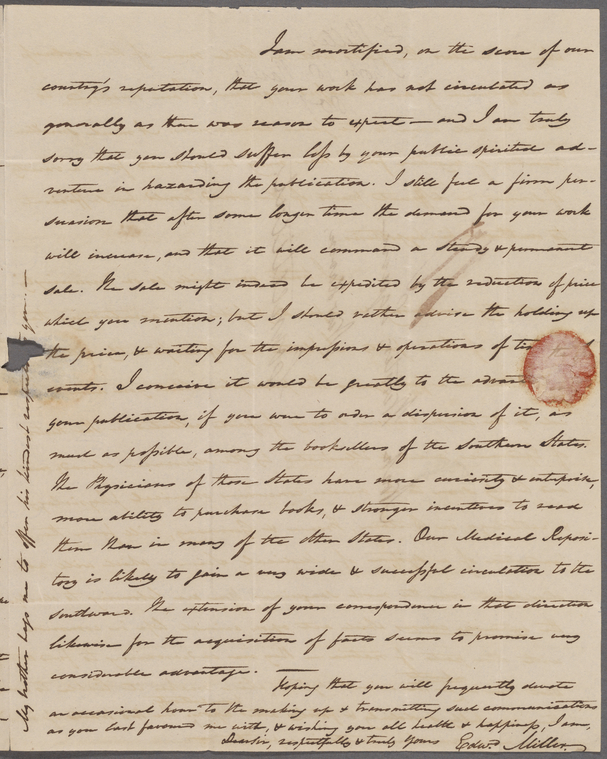 I am mortified, on the score of our
country's reputation, that your work has not circulated as
generally as there was reason to expect — and I am truly
sorry that you should suffer loss by your public spirited ad-
venture in hazarding the publication. I still feel a firm per-
suasion that after some longer time the demand for your work
will increase, and that it will command a steady & permanent
sale. The sale might indeed be expedited by the reduction of price
which you mention; but I should rather advise the holding up
the price, & waiting for the impressions & operations of
events. I conceive it would be greatly to the
your publication, if you were to order a dispersion of it, as
much as possible, among the booksellers of the Southern States.
The Physicians of those States have more curiosity & enterprise,
more ability to purchase books, & stronger incentives to read
them than in many of the other States. Our Medical Reposi-
tory is likely to gain a very wide & successful circulation to the
southward. The extension of your correspondence in that direction
likewise for the acquisition of facts seems to promise very
considerable advantage. —
Hoping that you will frequently devote
an occasional hour to the making up & transmitting such communications
as you last favoured me with, & wishing you all health & happiness, I am,
Dear Sir, respectfully & truly Yours Edwd. Miller.
My brother begs me to offer his kindest respects to you. —